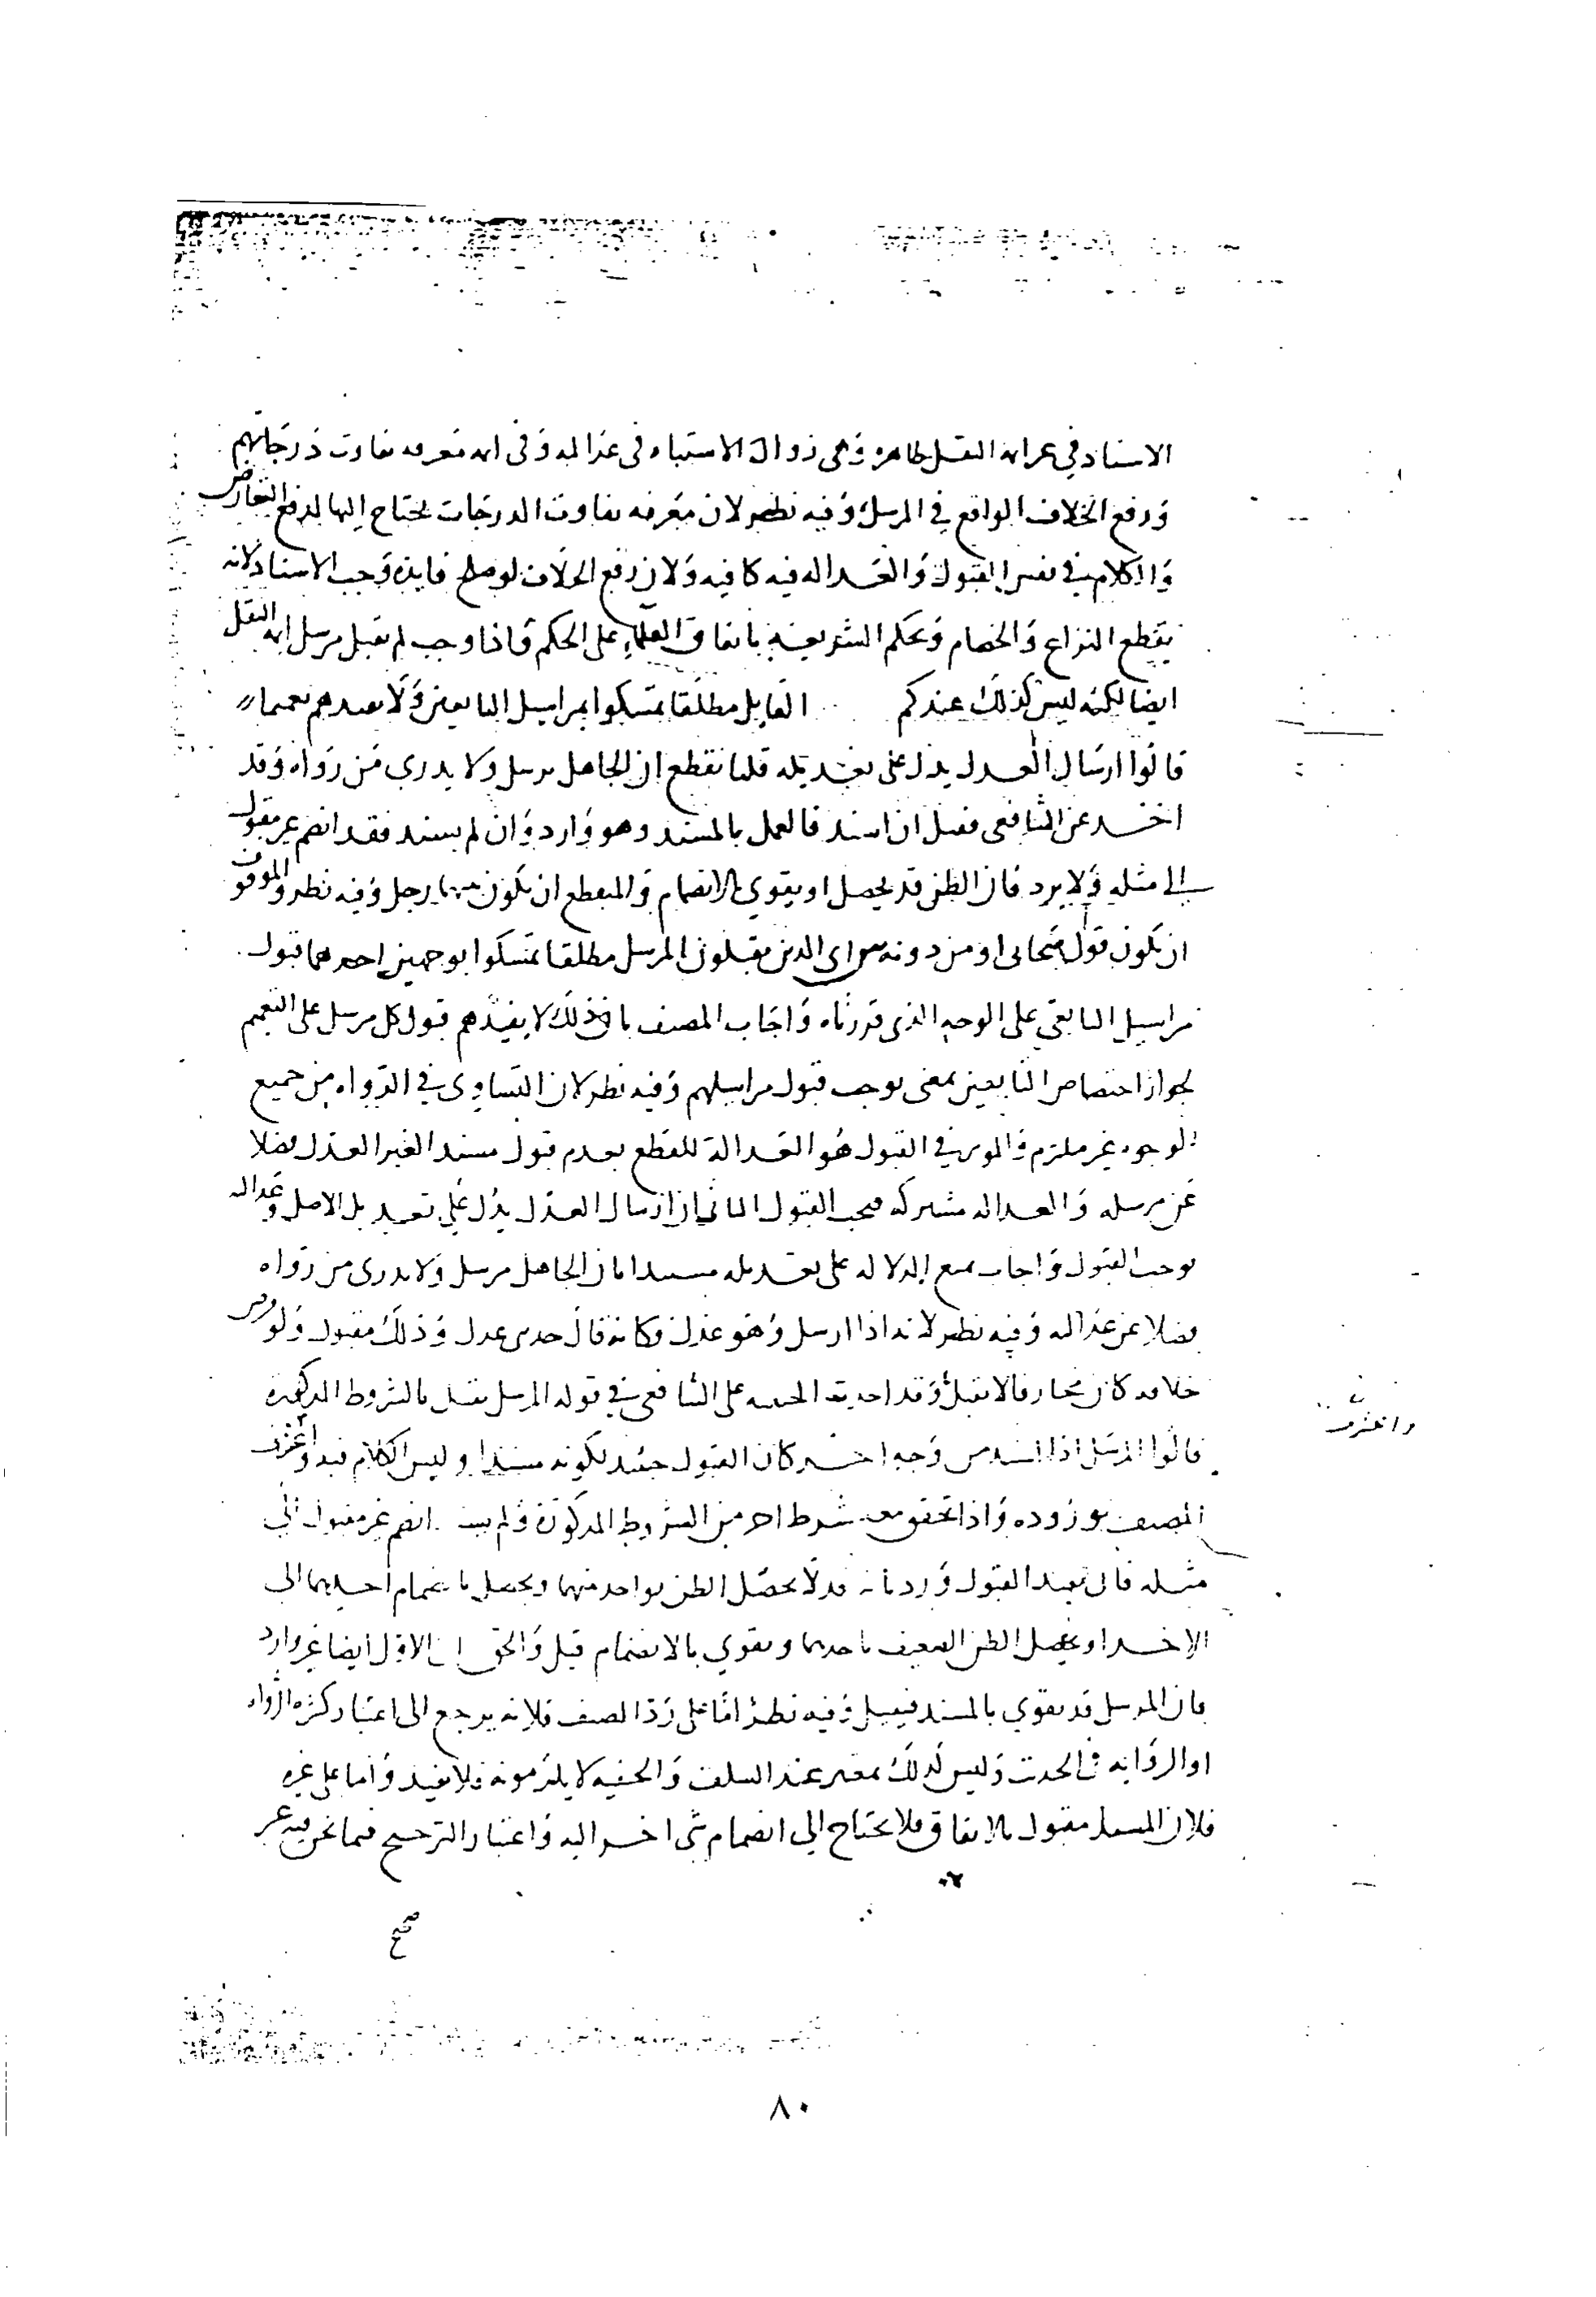 الاسناد في غير ائمة النقل ظاهرة وهي زوال الاشتباه في عدالته وفي ائمة معرفة تفاوت درجاتهم
ورفع الخلاف الواقع في المرسل وفيه نظر لان معرفة تفاوت الدرجات يحتاج اليها لدفع التعارض
والكلام في نفس القبول والعدالة فيه كافية ولان رفع الخلاف لو صلح فايدة وجب الاسناد لانه
يقطع النزاع والخصام وتحكم الشريعة باتفاق العلماء على الحكم واذا وجب لم يقبل مرسل ائمة النقل
ايضا لكنه ليس كذلك عندكم القايل مطلقا تمسكوا بمراسيل التابعين ولا يفيدهم تعميما
قالوا ارسال العدل يدل على تعديله قلنا نقطع ان الجاهل يرسل ولا يدري من رواه وقد
اخذ عن الشافعي فقيل ان اسند فالعمل بالمسند وهو وارد وان لم يسند فقد انضم غير مقبول
الى مثله ولا يرد فان الظن قد يحصل او يقوي بالانضمام والمنقطع ان يكون بينهما رجل وفيه نظر والموقوف
ان يكون قول صحابي او من دونه اي الذين يقبلون المرسل مطلقا تمسكوا بوجهين احدهما قبول
مراسيل التابعي على الوجه الذي قررناه واجاب المصنف بان ذلك لا يفيدهم قبول كل مرسل على التعميم
لجواز اختصاص التابعين بمعنى يوجب قبول مراسيلهم وفيه نظر لان التساوي في الرواه من جميع
الوجوه غير ملزم والموثر في القبول هو العدالة للقطع بعدم قبول مسند الغير العدل فضلا
عن مرسله والعدالة مشتركة فيجب القبول الثاني ان ارسال العدل يدل على تعديل الاصل وعدالته
توجب القبول واجاب بمنع الدلالة على تعديله مستندا بان الجاهل مرسل ولا يدرى من رواه
فضلا عن عدالته وفيه نظر لانه اذا ارسل وهو عدل فكانه قال حدثني عدل وذلك مقبول ولو فرض
خلافه كان مجازفا لا يقبل وقد اخذت الحنفية على الشافعي في قوله المرسل يقبل بالشروط المذكورة
قالوا المرسل اذا اسند من وجه اخر كان القبول حينئذ لكونه مسندا وليس الكلام فيه واعترف
المصنف بوروده واذا تحقق معه شرط اخر من الشروط المذكورة ولم يسند انضم غير مقبول الى
مثله فان يفيد القبول ورد بانه قد لا يحصل الظن بواحد منهما ويحصل بانضمام احديهما الى
الاخر او يحصل الظن الضعيف باحديهما ويقوي بالانضمام قيل والحق ان الاول ايضا غير وارد
فان المرسل قد يقوي بالمسند فيقبل وفيه نظر اما على رد المصنف فلانه يرجع الى اعتبار كثرة الرواه
او الرواية في الحديث وليس ذلك بمعتبر عند السلف والحنفيه لا يلتزمونه فلا يفيد واما على غيره
فلان المسند مقبول بالاتفاق فلا يحتاج الى انضمام شي اخر اليه واعتبار الترجيح فيما نحن فيه غير
صحيح
واعترف
٨٠